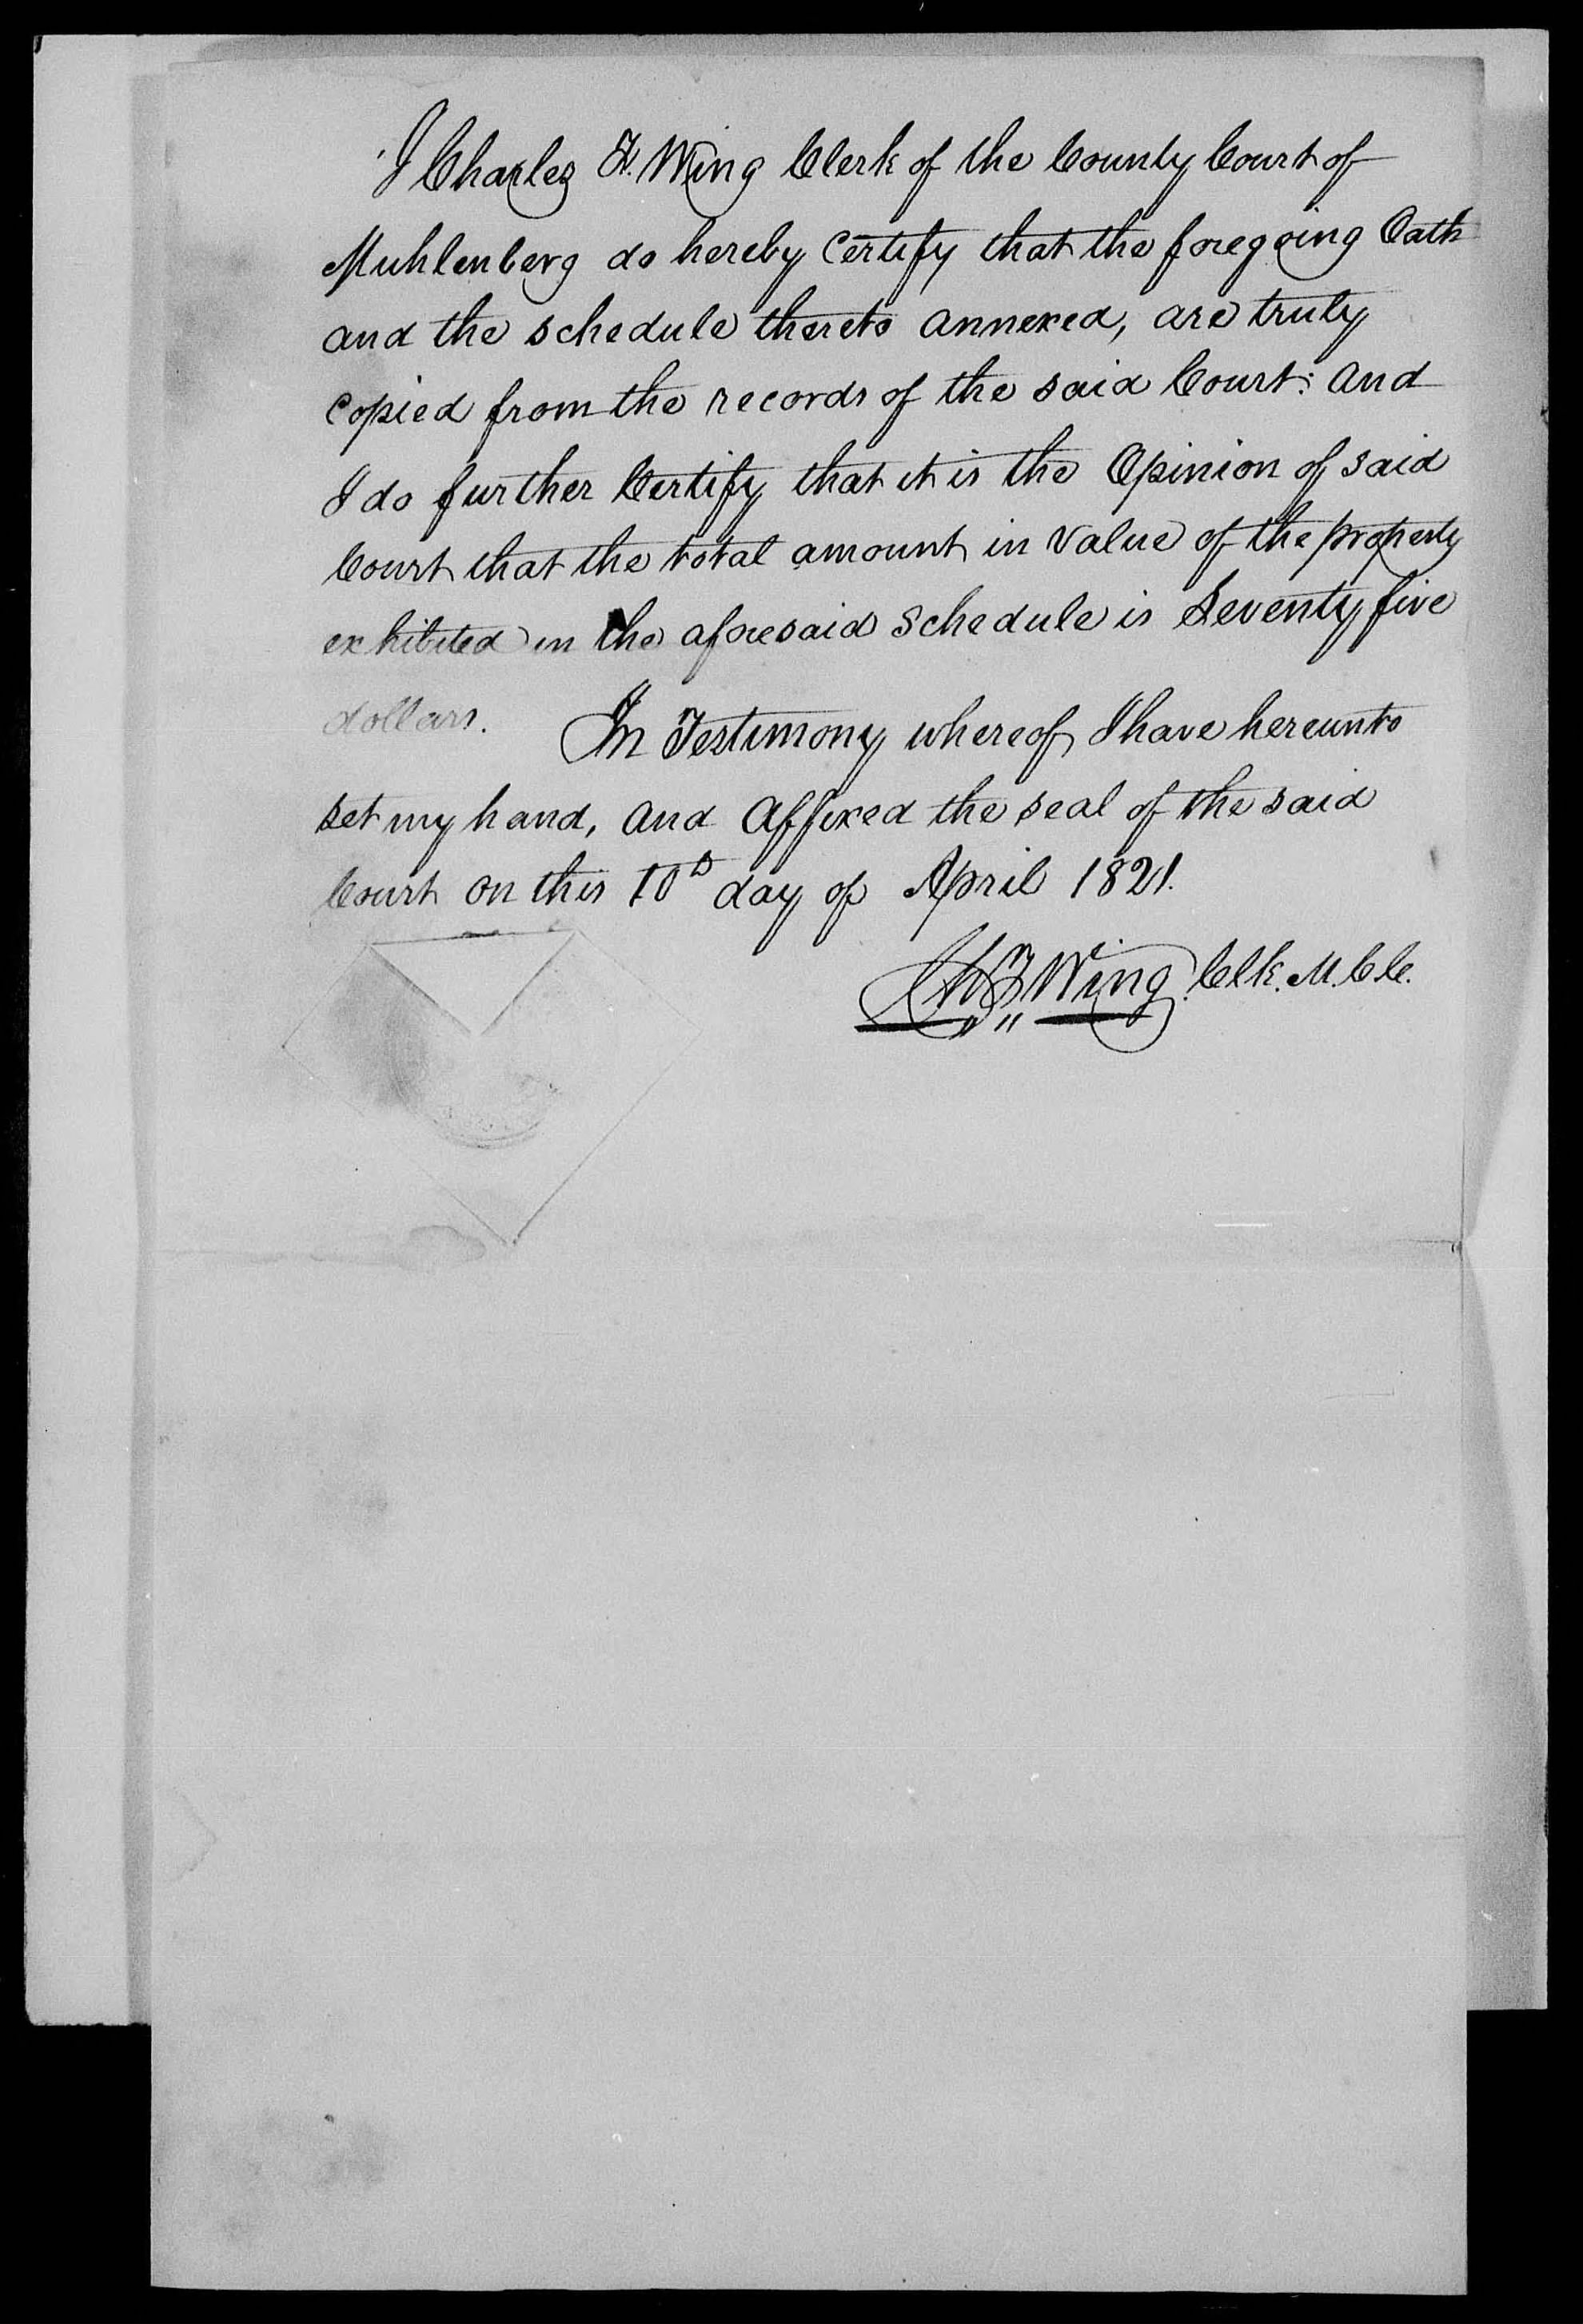 I Charles F. Wing Clerk of the County Court of
Muhlenberg do hereby Certify that the foregoing Oath
and the schedule thereto annexed, are truly
Copied from the records of the said Court: and
I do further Certify that it is the Opinion of said
Court that the total amount in value of the property
exhibited in the aforesaid Schedule is Seventy five
dollars. In Testimony whereof I have hereunto
set my hand, and affixed the seal of the said
Court on this 10th day of April 1821.
Ch F Wing Clk. M.C.C.